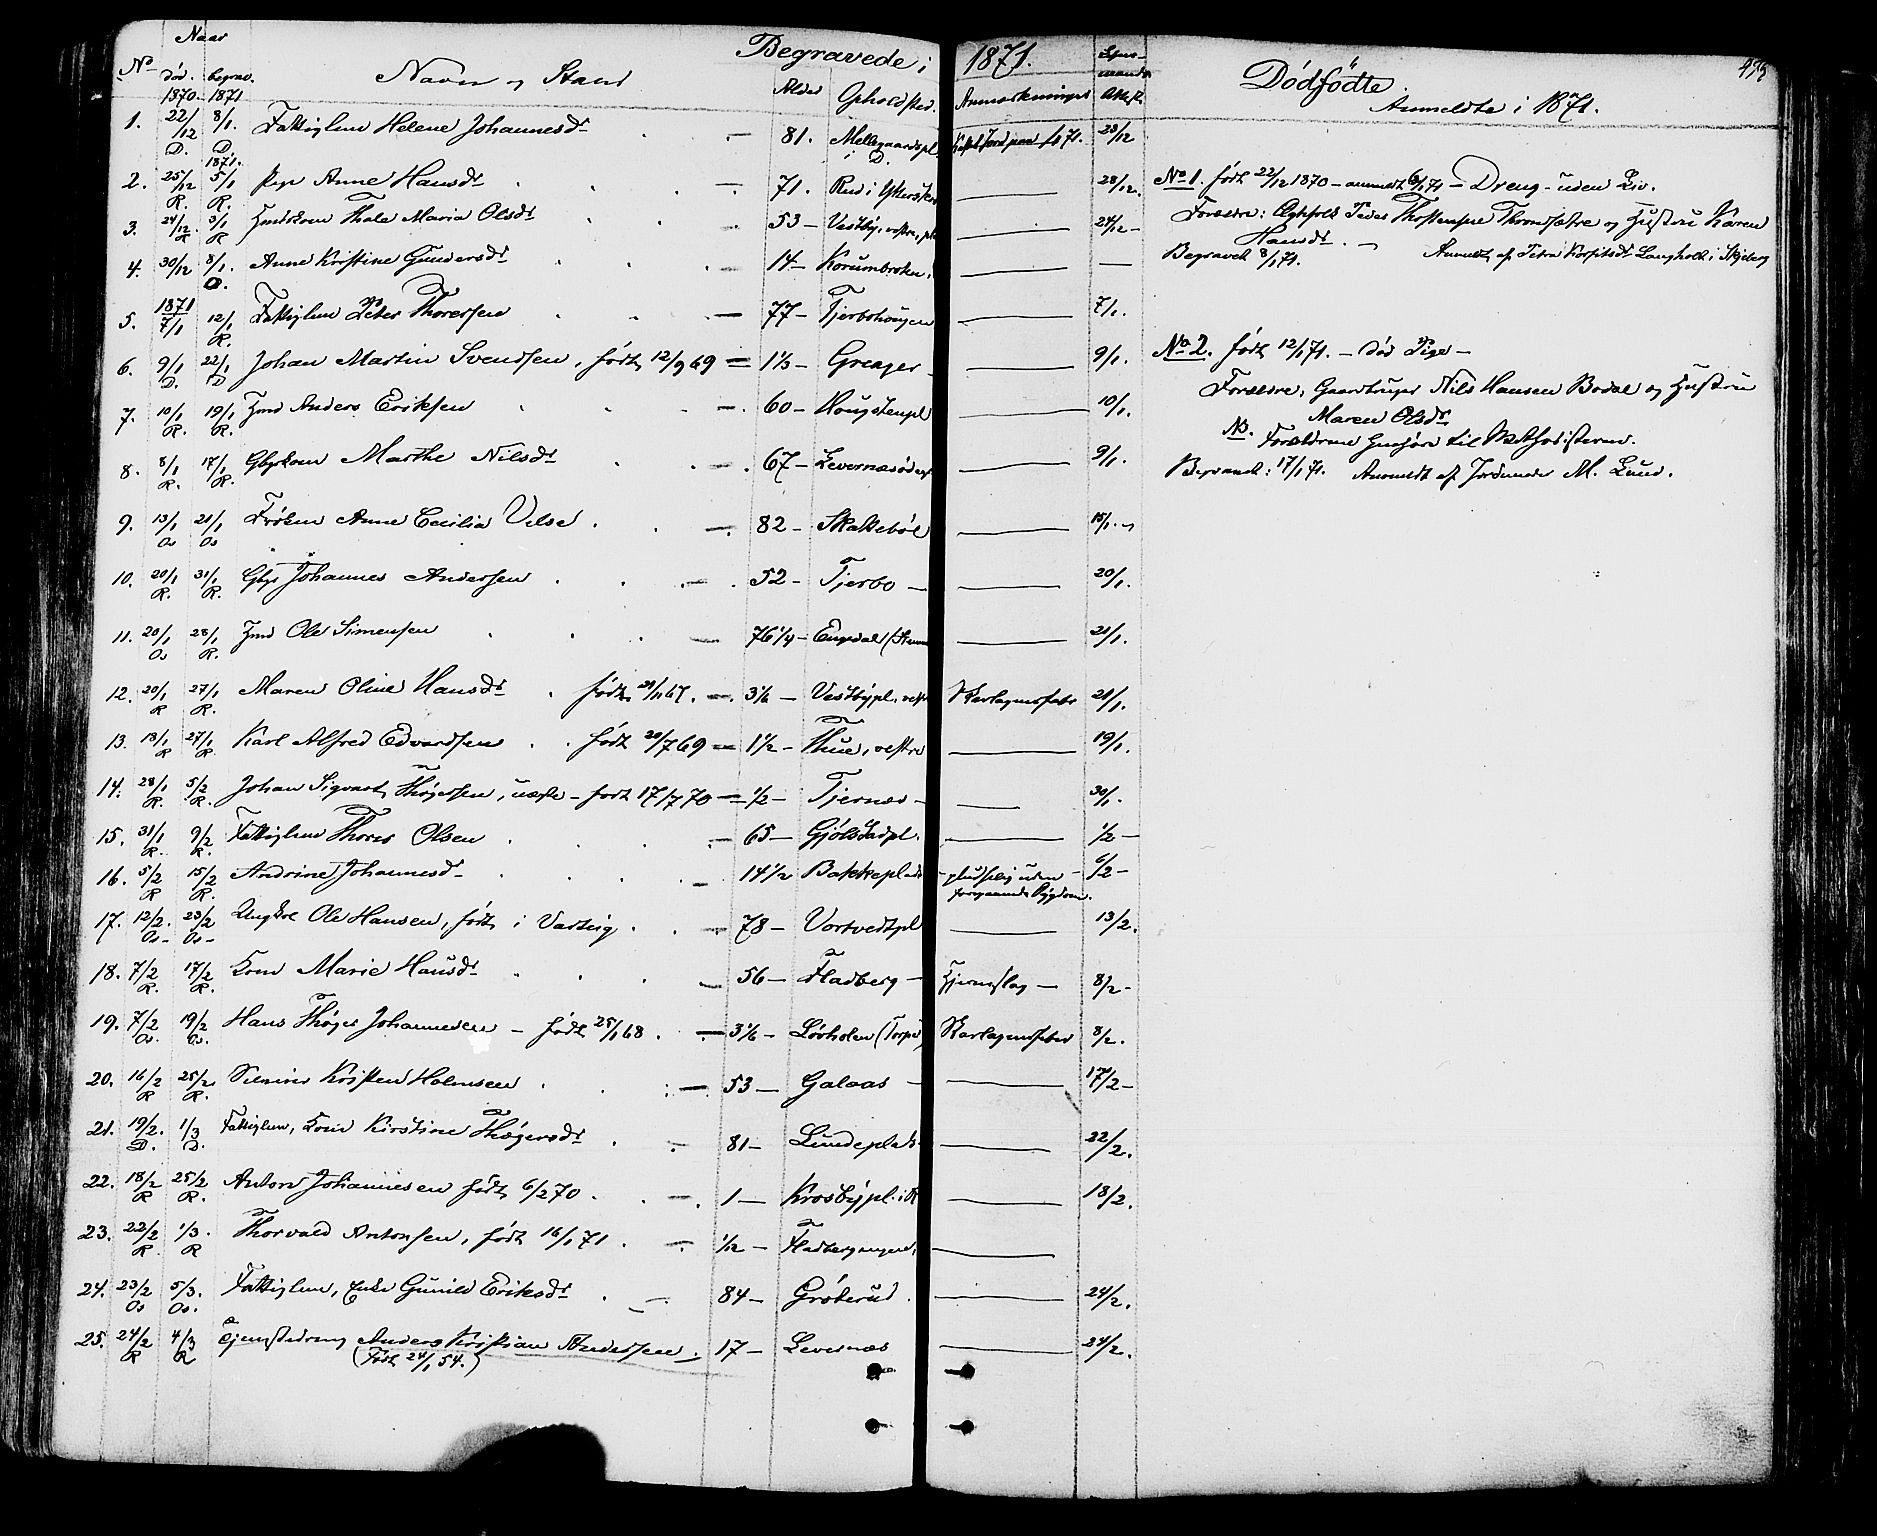 Begravede i 1871.
No Naar Navn og Stand Alder Opholdsted. Anmærkninger Attest.
død. begrav.
1870. 1871
1. 22/12 8/1. Fattiglem Helene Johannesdr — 81. Mellegaardspl.
D. D. i D. 28/12
1871.
2. 25/12 5/1 Pige Anne Hansdr — 71. Rud i — 28/12.
R. R.
3. 24/12 3/1 Thale Maria Olsdr — 53 — Vestby, vestre, — 24/12 —
R R
4. 30/12 8/1. Anne Kristine Gundersdr — 14 — Korumbroken, —
D.
1871
5. 7/1 12/1 Fattiglem Peter Thoresen — 77 — Tjerbohougen — 7/1.
R.
6. 9/1 22/1 Johan Martin Svendsen, født 12/9 69 — 1 1/3 — Greager — 9/1.
D. D
7. 10/1 19/1 Anders Eriksen — 60 — Hougstenpl — 10/1.
R. R.
8. 8/1 17/1 Marthe Nilsdr — 67 — — 9/1.
R. R.
9. 13/1 21/1 Frøken Anne Cecilia Velse — 82 — Skattebøl — 15/1.
Os Os
10. 20/1 31/1 Gbr Johannes Andersen — 52 — Tjerbo — 20/1.
R. R.
11. 20/1 28/1 Ole Simensen — 76 1/4 — Engedal — 21/1.
Os R.
12. 20/1 27/1 Maren Oline Hansdr født 67. — 3 1/6 — Vestbypl. Skarlagensfeber 21/1.
R R.
13. 18/1 27/1 Karl Alfred Edvardsen født 20/7 69 — 1 1/2 — Thue, vestre — 19/1.
R R.
14. 28/1 5/2 Johan Sigvart Thøgersen, uægte — født 17/7 70 — 1/2 — Tjernæs — 30/1.
R. R.
15. 31/1 9/2 Fattiglem Thores Olsen — 65 — Gjølstadpl. — 1/2 —
R. R.
16. 5/2 15/2 Andrine Johannesdr — 14 1/2 Bakkeplads — pludselig uden 6/2 —
R R. foregaaende Sygdom.
17. 12/2. 23/2 Ungkrl Ole Hansen, født i Varteig — 78 — Vortvedtpl — 13/2.
Os — Os —
18. 7/2 17/2 Kone Marie Hansdr — 56 — Fladberg — Hjerneslag — 8/2 —
R. R.
19. 7/2 19/2 Hans Thøger Johannesen — født 25/1 68 — 3 1/6 — Lørholen (Torpe) Skarlagensfeber 8/2.
Os. Os.
20. 16/2 25/2 Kristen Holmsen — 53 — Galaas — 17/2 —
R R.
21. 19/2. 1/3 Fattiglem, Kone Kirstine Thøgersdr — 81 — Lundeplads — 22/2.
D. D.
22. 18/2 25/2 Anton Johannesen født 6/2 70 — 1 — Krosbypl. i R — 18/2.
R R.
23. 22/2 1/3. Thorvald Antonsen, født 16/1 71 — 1/12 — Fladbergengen, —
R. R
24. 23/2 5/3. Fattiglem, Enke Gunild Eriksdr — 84 — Grøterud — 24/2.
Os Os.
25. 24/2 4/3 Tjenestedreng Anders Kristian Andersen — 17 — Levernæs — 24/2.
R R (Født 24/1 54.)
Dødfødte.
Anmeldte i 1871.
No 1. født 22/12 1870 — anmeldt 6/1 71 — Dreng — uden Liv.
Forældre: Peder Thostensen Thronsætre og Hustru Karen
Hansdr. —
Begravet 8/1 71. Anmeldt af Petra Langholt i Skjeberg
No 2. født 12/1 71. — død Pige —
Forældre: Gaardbruger Nils Hansen Bodal og Hustru
Maren Olsdr
NB. Forældrene henhøre til Methodisterne.
Begravet: 17/1 71. Anmeldt af Jordmoder M. Lund.